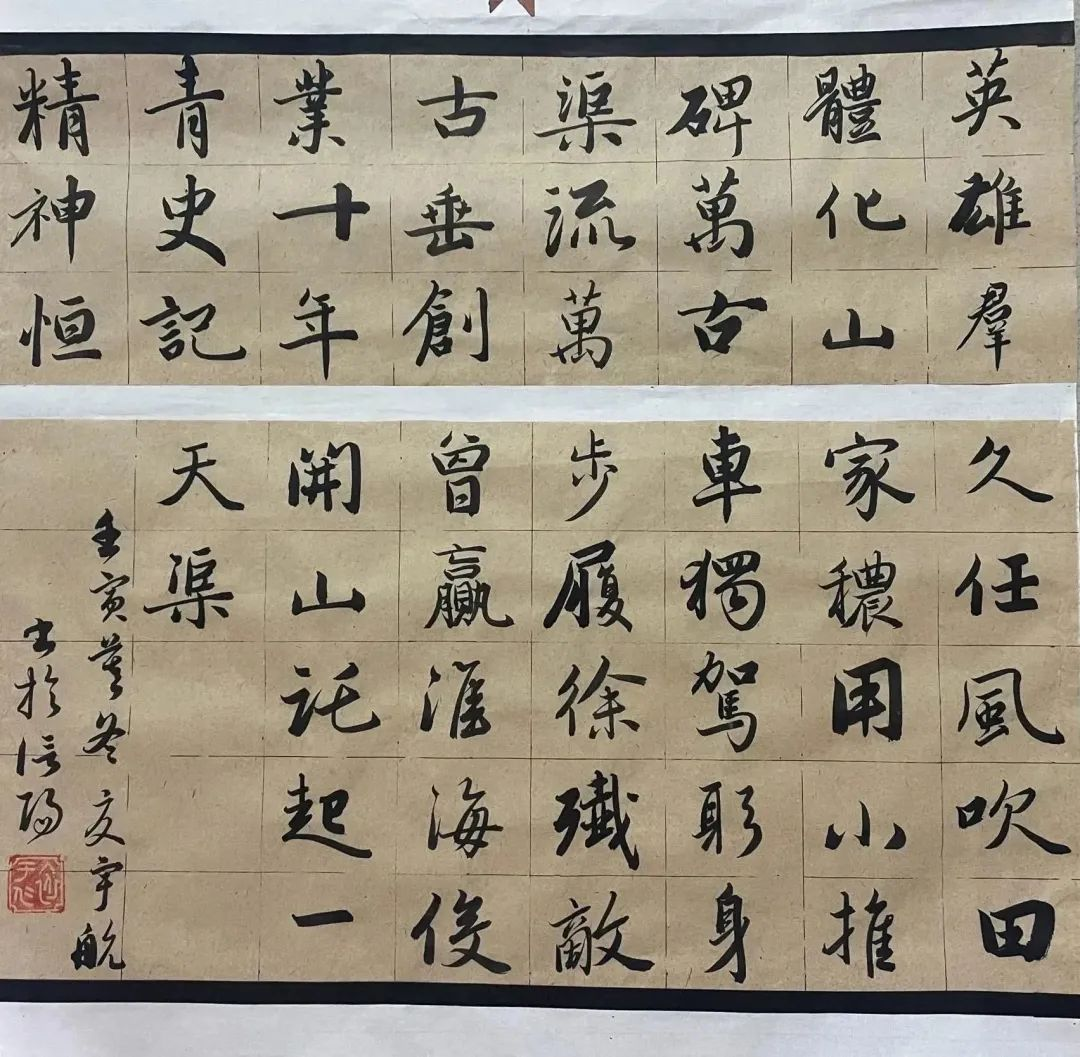 英雄羣
體化山
碑萬古
渠流萬
古垂創
業十年
青史記
精神恒
久任風吹田
家穠用小推
車獨駕躬身
步履徐殲敵
曾贏淮海役
開山託起一
天渠
壬寅冬宇航
書於信陽